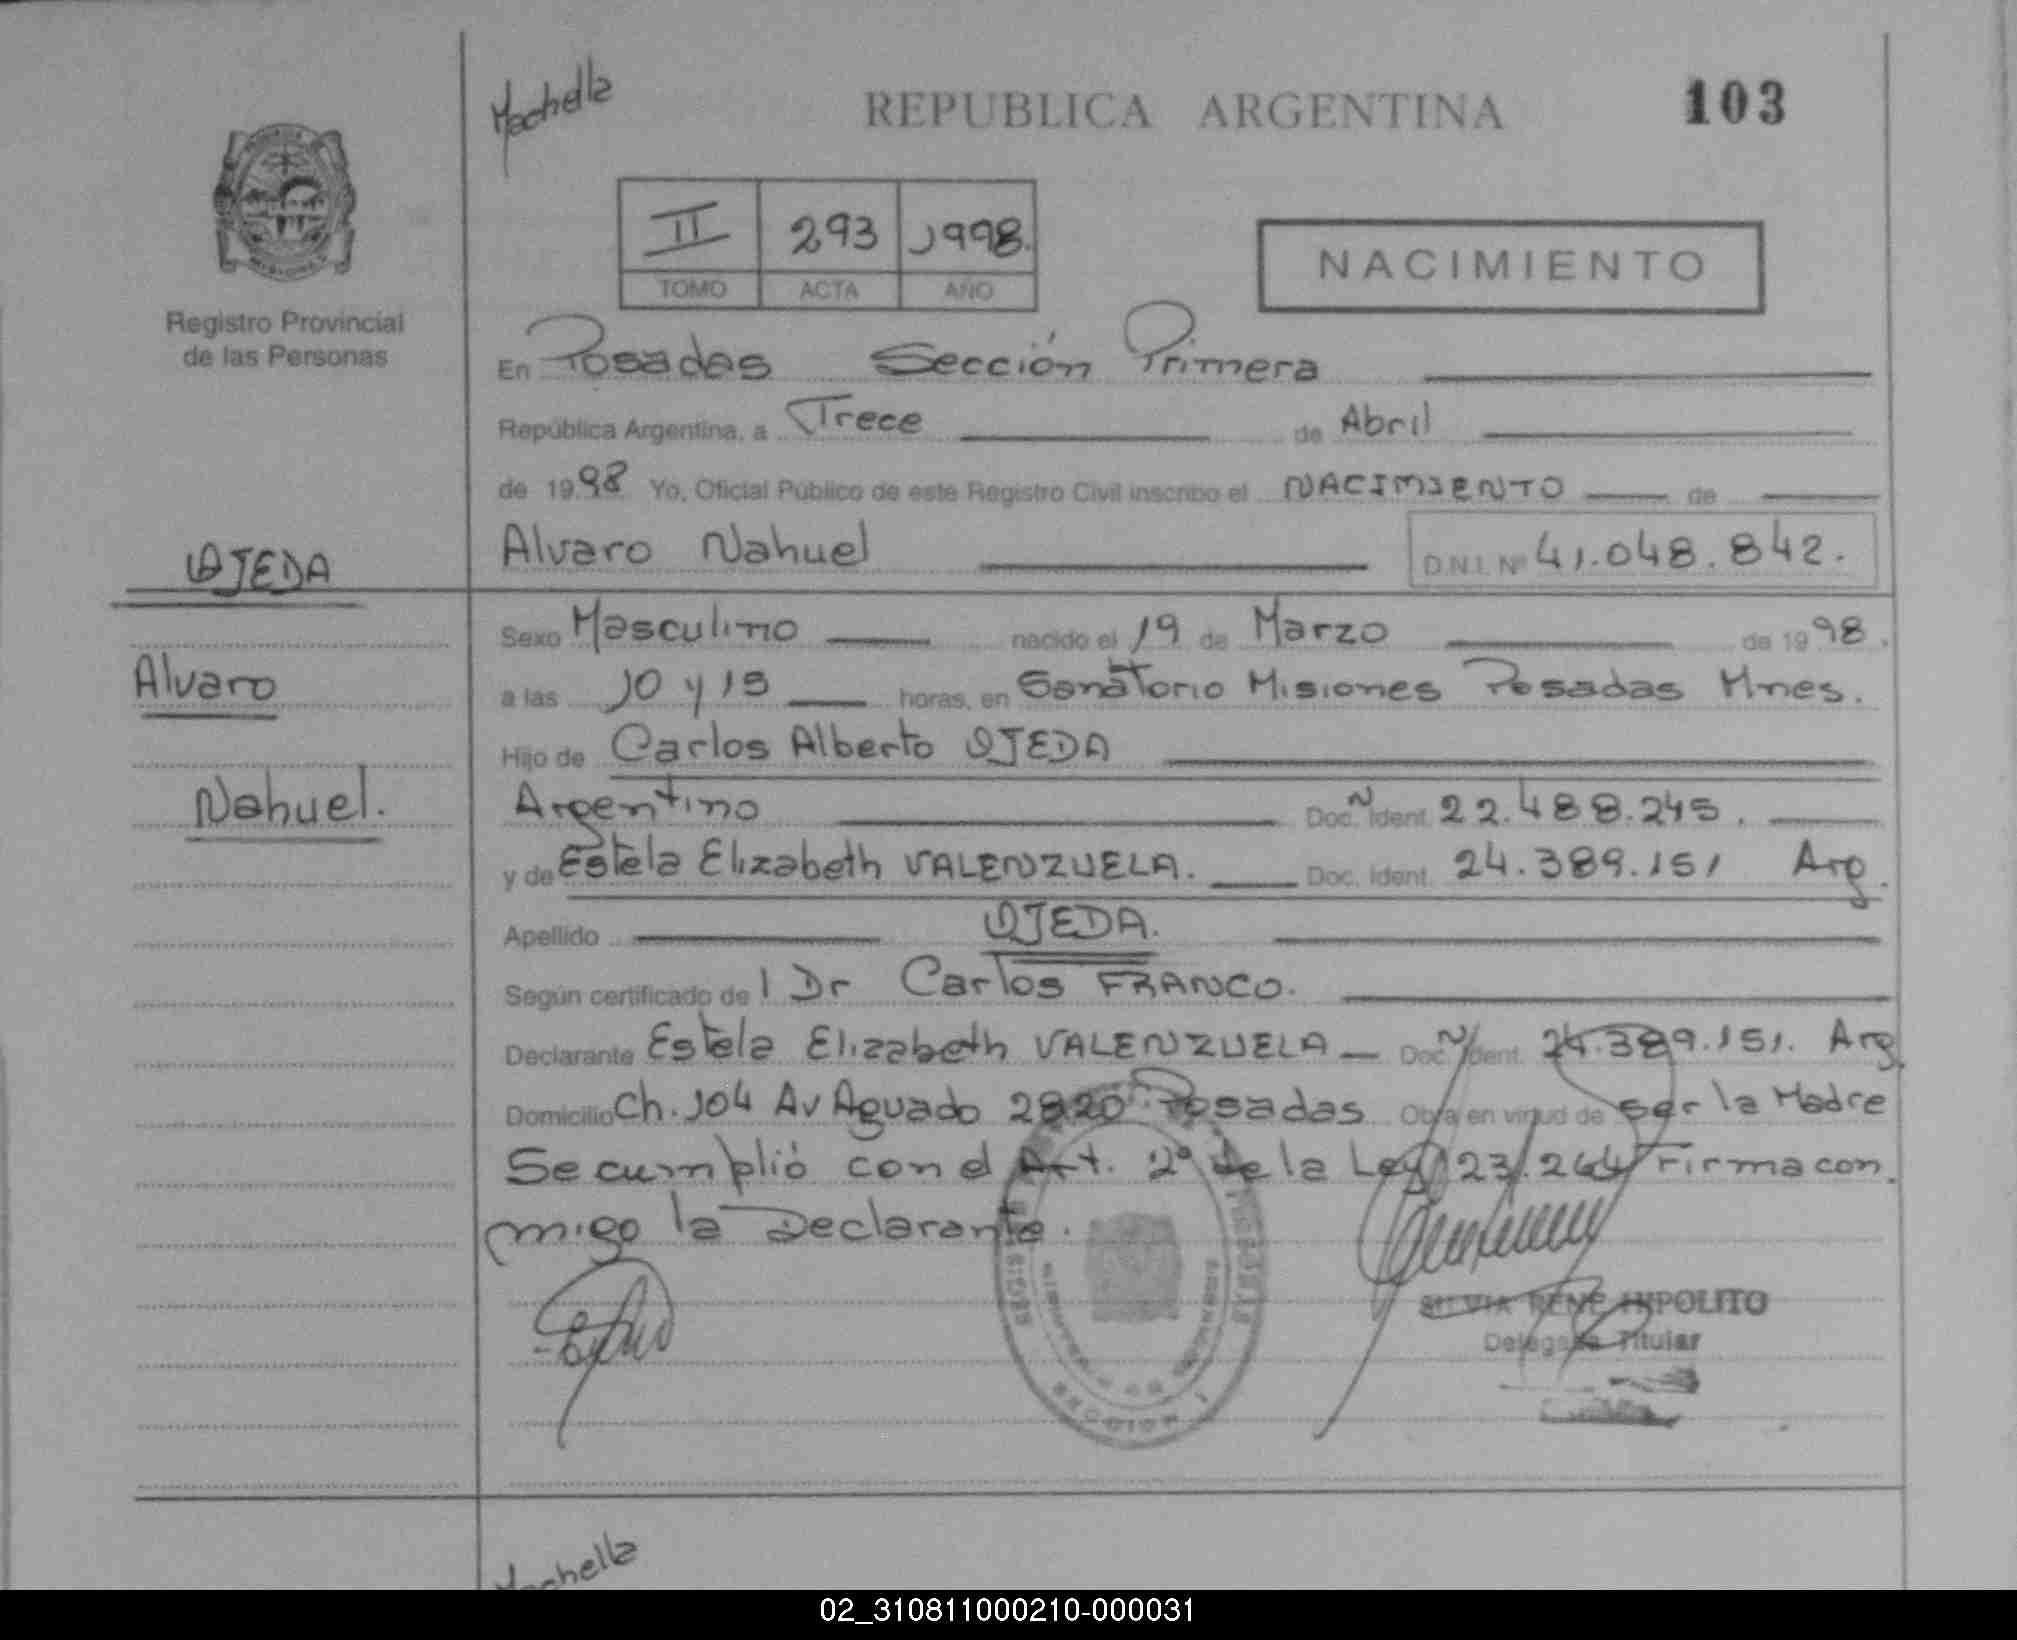 Mochella
REPUBLICA ARGENTINA
103
II 293 1998.
TOMO ACTA AÑO
NACIMIENTO
Registro Provincial
de las Personas
En Posadas Sección Primera
República Argentina, a Trece de Abril
de 1998 Yo, Oficial Público de este Registro Civil inscribo el NACIMIENTO de
Alvaro Nahuel D.N.I. Nº 41.048.842.
OJEDA
Alvaro
Nahuel.
Sexo Masculino nacido el 19 de Marzo de 1998.
a las 10 y 15 horas, en Sanatorio Misiones Posadas Mnes.
Hijo de Carlos Alberto OJEDA
Argentino Doc. Ident. 22.488.245.
y de Estela Elizabeth VALENZUELA. Doc. Ident. 24.389.151 Arg.
Apellido OJEDA.
Según certificado de l Dr Carlos FRANCO.
Declarante Estela Elizabeth VALENZUELA Doc. Ident. 24.389.151. Arg.
Domicilio Ch. 104 Av Aguado 2820 Posadas Obra en virtud de ser la Madre
Se cumplió con el Art. 2º de la Ley 23.264 Firma con
migo la Declarante.
SILVIA RENE HIPOLITO
Delegada Titular
SECCION 1
Mochella
02_310811000210-000031